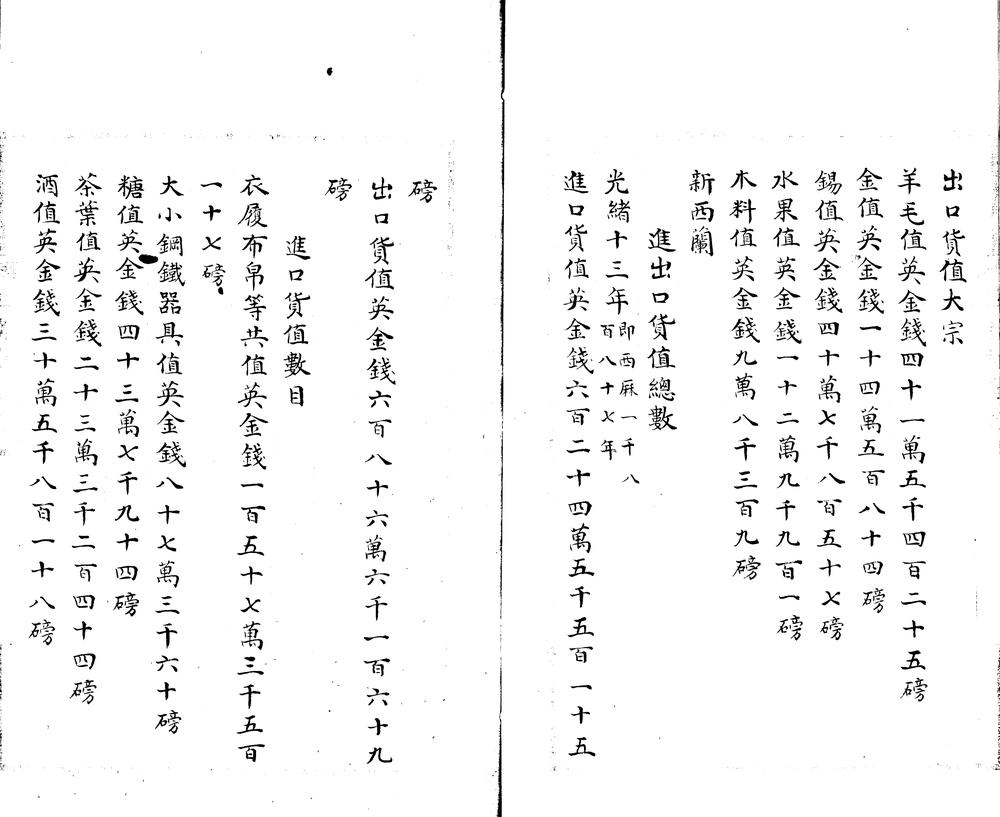 出口貨值大宗
羊毛值英金錢四十一萬五千四百二十五磅
金值英金錢一十四萬五百八十四磅
錫值英金錢四十萬七千八百五十七磅
水果值英金錢一十二萬九千九百一磅
木料值英金錢九萬八千三百九磅
新西蘭
進出口貨值總數
光緒十三年即西厤一千八百八十七年
進口貨值英金錢六百二十四萬五千五百一十五
磅
出口貨值英金錢六百八十六萬六千一百六十九
磅
進口貨值數目
衣履布帛等共值英金錢一百五十七萬三千五百
一十七磅
大小鋼鐵器具值英金錢八十七萬三千六十磅
糖值英金錢四十三萬七千九十四磅
茶葉值英金錢二十三萬三千二百四十四磅
酒值英金錢三十萬五千八百一十八磅